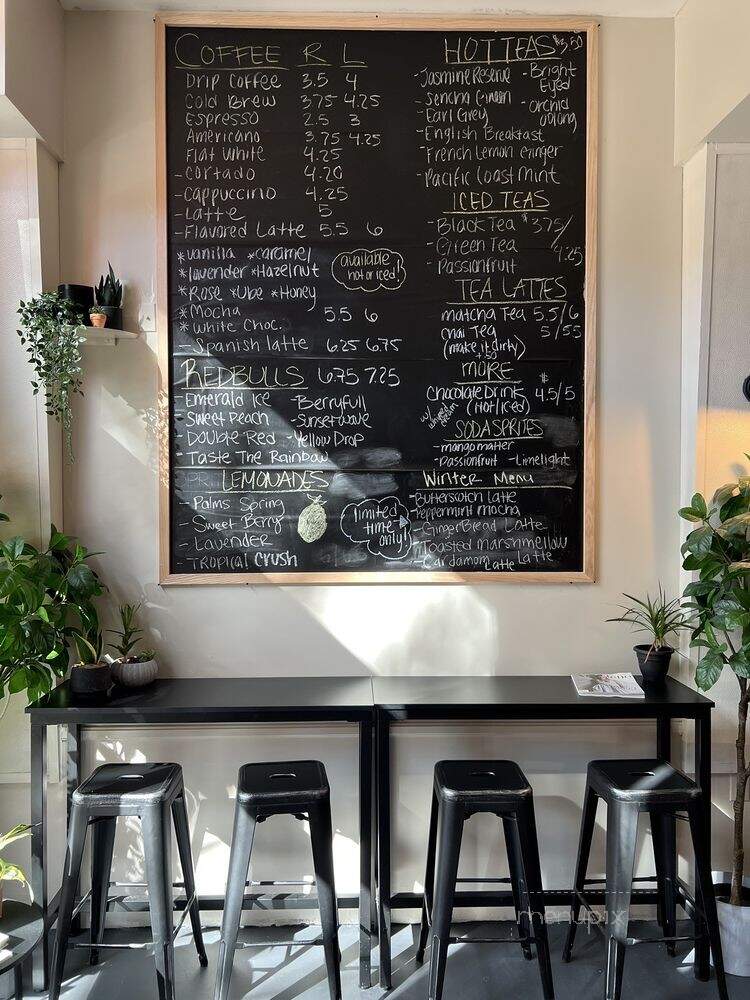 COFFEE R L
DRIP COFFEE 3.5 4
COLD BREW 3.75 4.25
ESPRESSO 2.5 3
AMERICANO 3.75 4.25
FLAT WHITE 4.25
- CORTADO 4.20
- CAPPUCCINO 4.25
- LATTE 5
- FLAVORED LATTE 5.5 6
*VANILLA *CARAMEL
*LAVENDER *HAZELNUT
*ROSE *UBE *HONEY
available hot or iced!
*MOCHA 5.5 6
*WHITE CHOC.
- SPANISH LATTE 6.25 6.75
REDBULLS 6.75 7.25
- EMERALD ICE - BERRYFULL
- SWEET PEACH - SUNSET WAVE
- DOUBLE RED - YELLOW DROP
- TASTE THE RAINBOW
LEMONADES
- PALMS SPRING
- SWEET BERRY
- LAVENDER
TROPICAL CRUSH
limited time only!
HOT TEAS $3.50
- JASMINE RESERVE - BRIGHT EYED
- SENCHA GREEN - ORCHID OOLONG
- EARL GREY
- ENGLISH BREAKFAST
- FRENCH LEMON GINGER
- PACIFIC COAST MINT
ICED TEAS
- BLACK TEA $3.75/4.25
- GREEN TEA
- PASSIONFRUIT
TEA LATTES
MATCHA TEA 5.5/6
CHAI TEA 5/5.5
(MAKE IT DIRTY)
+.50
MORE
CHOCOLATE DRINK $4.5/5
(HOT/ICED)
SODA SPRITES
- MANGO MATTER
- PASSIONFRUIT - LIMELIGHT
WINTER MENU
- BUTTERSCOTCH LATTE
PEPPERMINT MOCHA
- GINGERBREAD LATTE
TOASTED MARSHMELLOW LATTE
- CARDAMOM LATTE
menupix